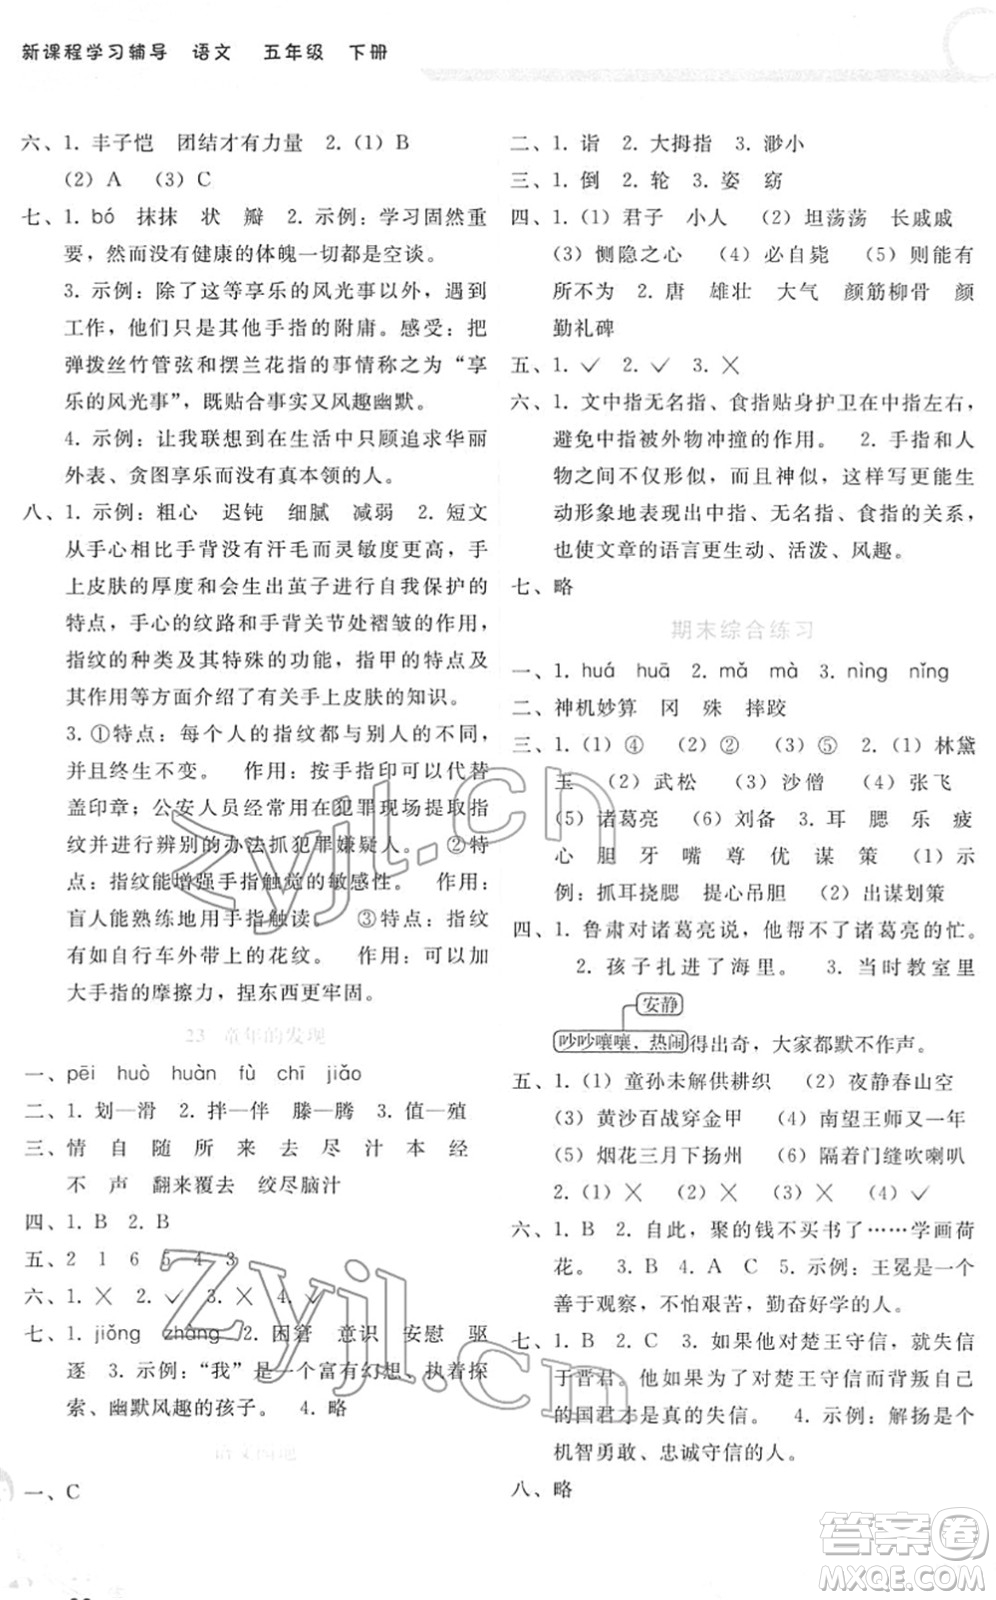 新课程学习辅导 语文 五年级 下册
六、1. 丰子恺 团结才有力量 2. (1) B
(2) A (3) C
七、1. bó 抹抹 状 瓣 2. 示例：学习固然重
要，然而没有健康的体魄一切都是空谈。
3. 示例：除了这等享乐的风光事以外，遇到
工作，他们只是其他手指的附庸。感受：把
弹拨丝竹管弦和摆兰花指的事情称之为“享
乐的风光事”，既贴合事实又风趣幽默。
4. 示例：让我联想到在生活中只顾追求华丽
外表、贪图享乐而没有真本领的人。
八、1. 示例：粗心 迟钝 细腻 减弱 2. 短文
从手心比手背没有汗毛而灵敏度更高，手
上皮肤的厚度和会生出茧子自我保护的
特点，手心的纹路和手背有很大褶皱的特点，
指纹的种类及其特殊的功能，指甲的特点
及其作用等方面介绍了有关手上皮肤的知识。
3. ①特点：每个人的指纹都与别人的不同，
并且终生不变。 作用：按手指印可以代替
盖印章；公安人员经常用在犯罪现场提取指纹
并进行辨别的办法抓犯罪嫌疑人。 ②特
点：指纹能增强手指触觉的敏感性。 作用：
盲人能熟练地用手指触读。 ③特点：指纹
有如自行车外带上的花纹。 作用：可以加
大手指的摩擦力，捏东西更牢固。
23 童年的发现
一、pēi huò huàn fù chī jiǎo
二、1. 划—滑 2. 拌—伴 滕—腾 3. 值—殖
三、情 自 随 所 来 去 尽 汁 本 经
不 声 翻来覆去 绞尽脑汁
四、1. B 2. B
五、2 1 6 5 4 3
六、1. ✕ 2. ✓ 3. ✕ 4. ✓
七、1. jiǒng zhàng 2. 困窘 意识 安慰 驱
逐 3. 示例：“我”是一个富有幻想、执着探
索、幽默风趣的孩子。 4. 略
语文园地
一、C
二、1. 诣 2. 大拇指 3. 渺小
三、1. 倒 2. 轮 3. 姿 窈
四、1. (1) 君子 小人 (2) 坦荡荡 长戚戚
(3) 恻隐之心 (4) 必自毙 (5) 则能有
所不为 2. 唐 雄壮 大气 颜筋柳骨 颜
勤礼碑
五、1. ✓ 2. ✓ 3. ✕
六、1. 文中指无名指、食指贴身护卫在中指左右，
避免中指被外物冲撞的作用。 2. 手指和人
物之间不仅形似，而且神似，这样写更能生
动形象地表现出中指、无名指、食指的关系，
也使文章的语言更生动、活泼、风趣。
七、略
期末综合练习
一、1. huá huā 2. mǎ mà 3. nìng nǐng
二、神机妙算 冈 殊 摔跤
三、1. (1) ④ (2) ② (3) ⑤ 2. (1) 林黛
玉 (2) 武松 (3) 沙僧 (4) 张飞
(5) 诸葛亮 (6) 刘备 3. 耳 腮 乐 疲
心 胆 牙 嘴 尊 优 谋 策 (1) 示
例：抓耳挠腮 提心吊胆 (2) 出谋划策
四、1. 鲁肃对诸葛亮说，他帮不了诸葛亮的忙。
2. 孩子扎进了海里。 3. 当时教室里
安静
吵吵嚷嚷，热闹得出奇，大家都默不作声。
五、1. (1) 童孙未解供耕织 (2) 夜静春山空
(3) 黄沙百战穿金甲 (4) 南望王师又一年
(5) 烟花三月下扬州 (6) 隔着门缝吹喇叭
2. (1) ✕ (2) ✕ (3) ✕ (4) ✓
六、1. B 2. 自此，聚的钱不买书了……学画荷
花。 3. B 4. A C 5. 示例：王冕是一个
善于观察，不怕艰苦，勤奋好学的人。
七、1. B 2. C 3. 如果他对楚王守信，就失信
于晋君；而他为了对楚王守信而牺牲了自己
的国君才是真的失信。 4. 示例：解扬是个
机智勇敢、忠诚守信的人。
八、略
zyjl.cn
zyjl.cn
答案卷
MXQE.COM